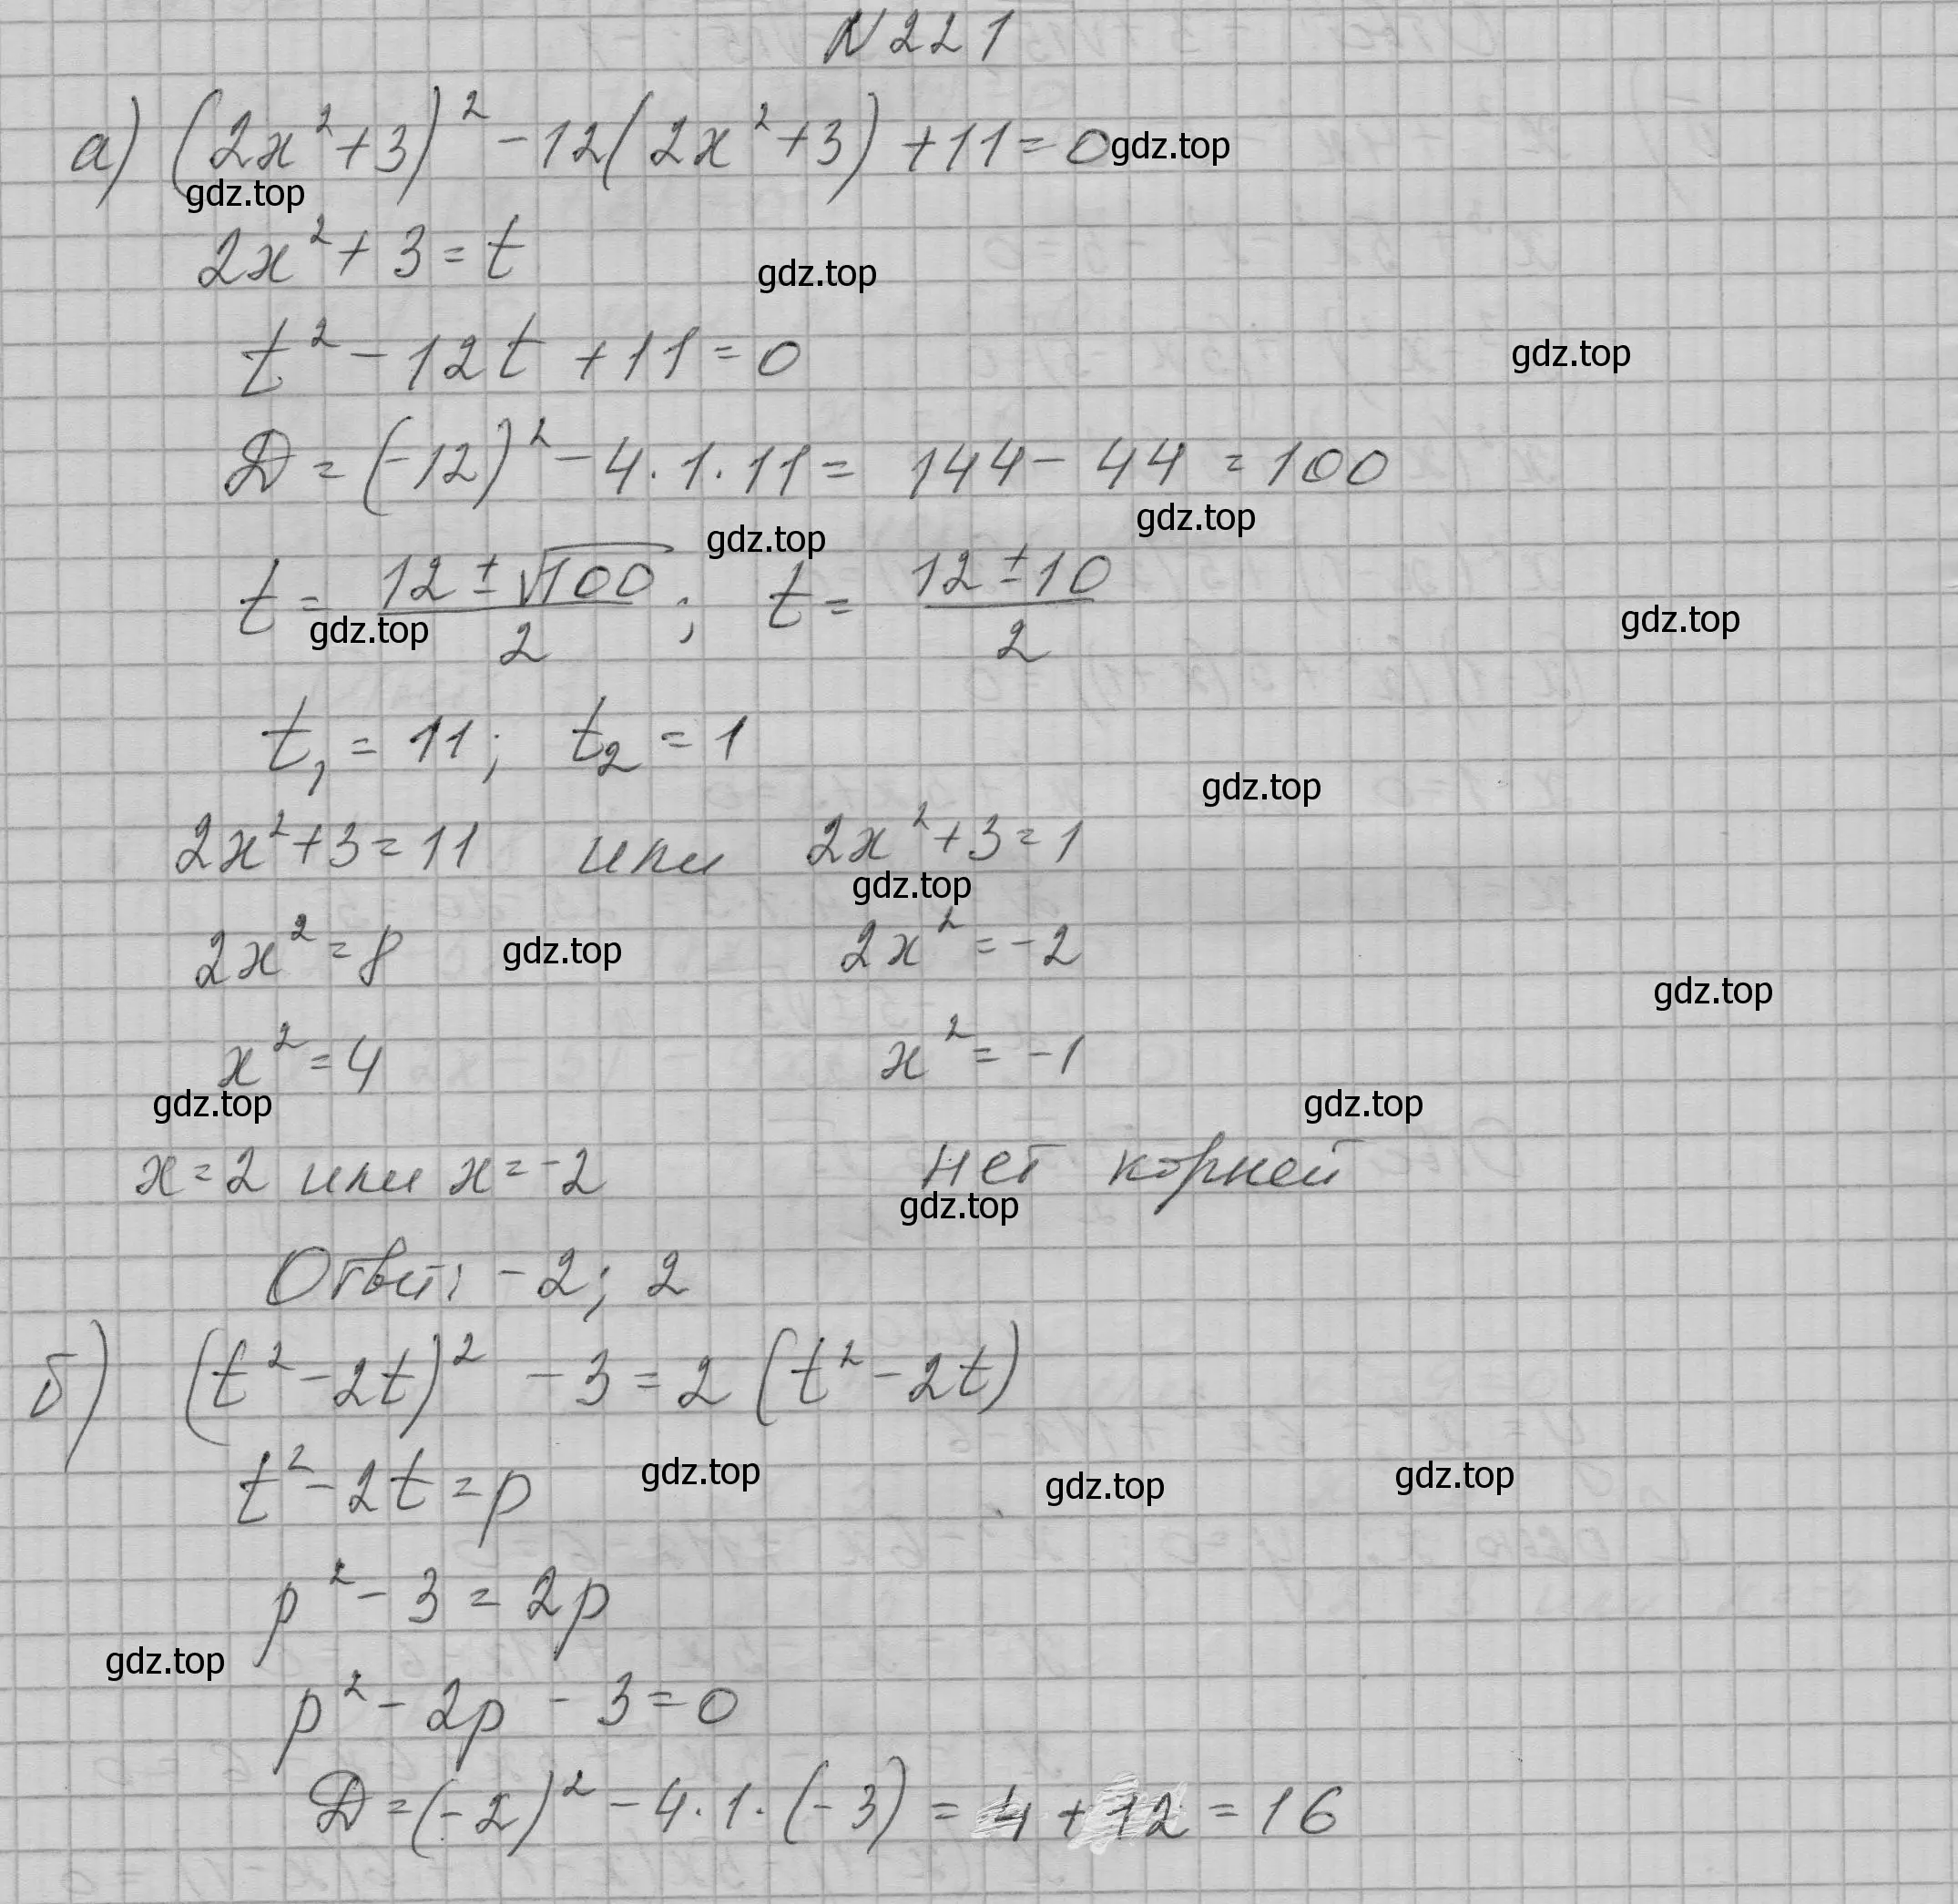 N 221
а) (2x²+3)² - 12(2x²+3) + 11 = 0 gdz.top
gdz.top
2x² + 3 = t
gdz.top
t² - 12t + 11 = 0
gdz.top
D = (-12)² - 4·1·11 = 144 - 44 = 100
gdz.top gdz.top
t = (12 ± √100)/2; t = (12 ± 10)/2
gdz.top gdz.top
t₁ = 11; t₂ = 1
gdz.top
2x² + 3 = 11 или 2x² + 3 = 1
gdz.top
2x² = 8 gdz.top 2x² = -2
gdz.top
x² = 4 x² = -1
gdz.top gdz.top
x = 2 или x = -2 нет корней
gdz.top
Ответ: -2; 2
б) (t² - 2t)² - 3 = 2(t² - 2t)
gdz.top gdz.top gdz.top
t² - 2t = p
p² - 3 = 2p
gdz.top
p² - 2p - 3 = 0
D = (-2)² - 4·1·(-3) = 4 + 12 = 16